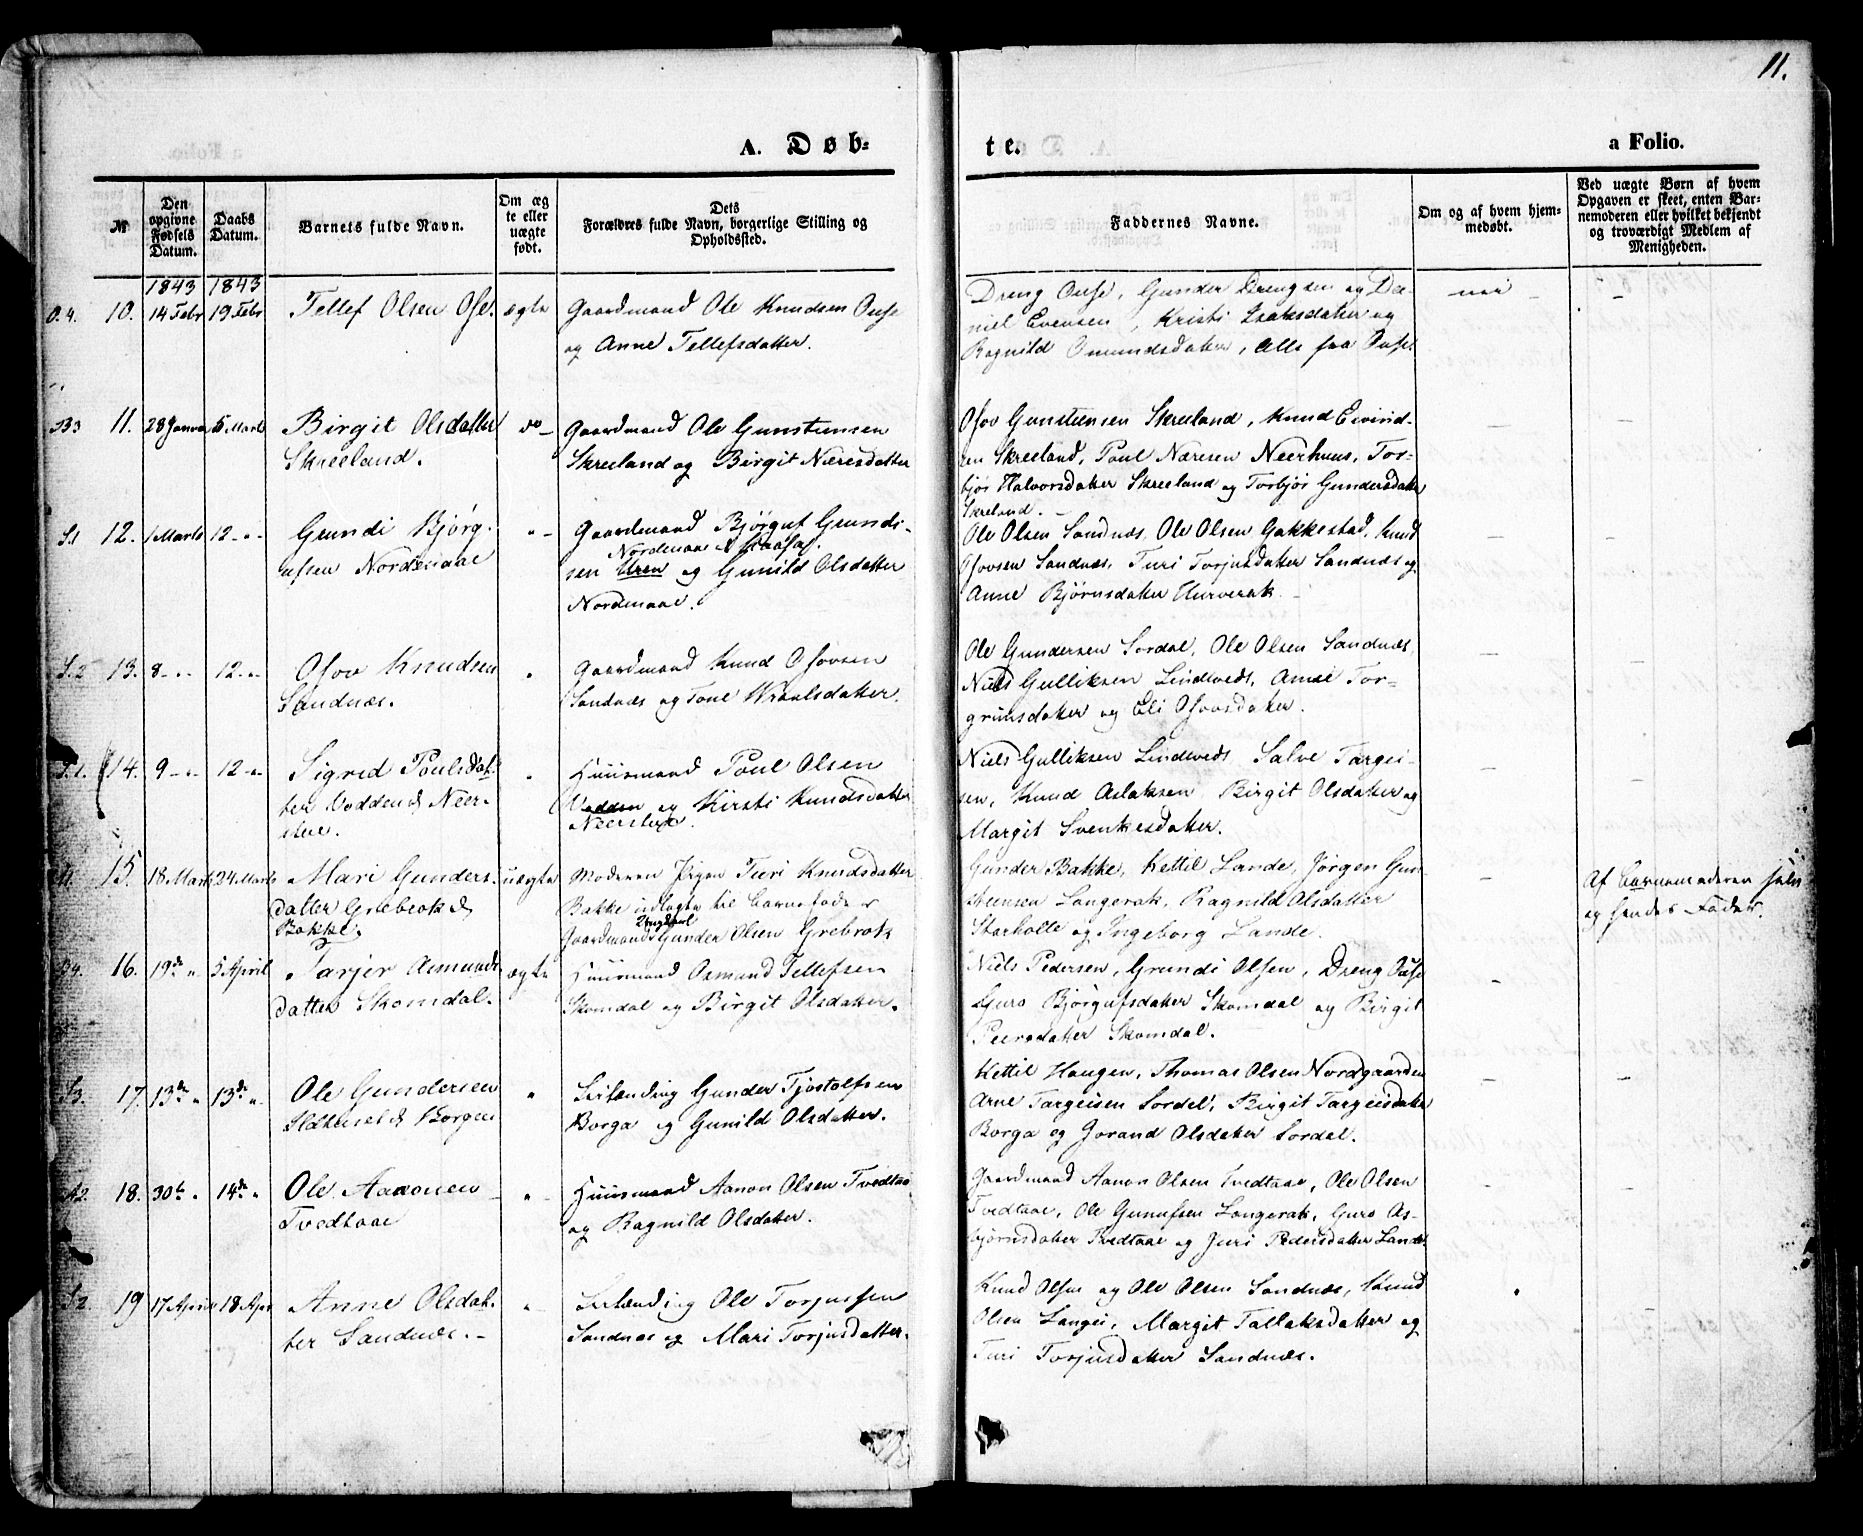 11.
A. Døb-
te.
a Folio.
№
Den opgivne Fødsels Datum.
Daabs Datum.
Barnets fulde Navn.
Om ægte eller uægte født.
Dets Forældres fulde Navn, borgerlige Stilling og Opholdssted.
Faddernes Navne.
Om og af hvem hjemmedøbt.
Ved uægte Børn af hvem Opgaven er skeet, enten Barnemoderen eller hvilket bekjendt og troværdigt Medlem af Menigheden.
1843 1843
O.4. 10. 14 Febr 19 Febr Tellef Olsen Ose. ægte Gaardmand Ole Knudsen Ouse
og Anne Tellefsdatter.
Dreng Ouse, Gunder Drengsen og Da-
niel Evensen, Kristi Isaksdatter og
Ragnild Omundsdatter, alle fra Ouse.
nei -
B3 11. 28 Janua 5 Marts Birgit Olsdatter do - Gaardmand Ole Gunstensen
Skreeland. Skreeland og Birgit Næresdatter
Osov Gunstensen Skreeland, Knud Eivind-
sen Skreeland, Poul Næresen Neerhuus, Tor-
bjør Halvorsdatter Skreeland og Torbjør Gundersdatter
Skreland.
S.1 12. 1 Marts 12 - " - Grundi Bjørg- " - Gaardmand Bjørguf Grundi-
Nordenaae
ufsen Nordenaae sen Uren og Gunild Olsdatter
Nordenaae.
Ole Olsen Sandnæs, Ole Olsen Gakkestad, Knud
Osovsen Sandnæs, Turi Torjusdatter Sandnæs og
Anne Bjørnsdatter Hurverak.
S.2 13. 8 - " - 12 - " - Osov Knudsen " Gaardmand Knud Osovsen
Sandnæs. Sandnæs og Tone Wraalsdatter.
Ole Gundersen Sordal, Ole Olsen Sandnæs,
Niels Gulliksen Lindtveds, Anne Tor-
grimsdatter og Eli Osovsdatter.
S.1. 14. 9 - " 12 - " - Sigrid Poulsdat- " Huusmand Poul Olsen
ter Vodden & Neer- Vodden og Kirsti Knudsdatter
stue. Neerstue.
Niels Gulliksen Lindtveds, Salve Targei-
sen, Knud Aslaksen, Birgit Olsdatter og
Margit Svenkesdatter.
15. 18 Marts 24 Marts Mari Gunders- uægte Moderen Pigen Turi Knudsdatter
datter Grebrok & Bakke udlagte til Barnefader
Bakke. Ungkarl
Gaardmand Gunder Olsen Grebrok
Gunder Bakke, Kettil Lande, Jørgen Gun-
stensen Langerak, Ragnild Olsdatter
Starholte og Ingeborg Lande.
Af Barnemoderen selv
og hendes Fader.
16. 19de " 5 April Tarjer Asmunds- ægte Huusmand Osmund Tellefsen
datter Skomdal. Skomdal og Birgit Olsdatter.
Niels Pedersen, Grundi Olsen, Dreng Ouse
Guro Bjørgufsdatter Skomdal og Birgit
Peersdatter Skomdal.
S3. 17. 13de " 13de " Ole Gundersen " Inderst Gunder Tjostolfsen
Ildhuset & Borgen Borga og Gunild Olsdatter.
Kettil Haugen, Thomas Olsen Nordgaarden
Arne Targeisen Sordal, Birgit Targeisdatter
Borga og Jorand Olsdatter Sordal.
A2. 18. 30te " 14de " Ole Aanonsen " - Huusmand Aanon Olsen Tvedtaae
Tvedtaae og Ragnild Olsdatter.
Gaardmand Aanon Olsen Tvedtaae, Ole Olsen
Tvedtaae, Ole Gunufsen Langerak, Guro As-
bjørnsdatter Tvedtaae og Juri Pedersdatter Lande.
S.2. 19 17 April 18 Apr Anne Olsdat- " Ole Torjussen
ter Sandnæs. - Sandnæs og Mari Torjusdatter.
Knud Olsen og Ole Olsen Sandnæs, Knud
Olsen Langei, Margit Tallaksdatter og
Turi Torjusdatter Sandnæs.